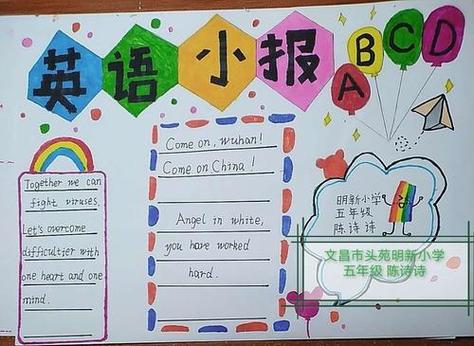 英语小报
A B C D
Together we can
fight viruses.
Let's overcome
difficultier with
one heart and one
mind.
Come on, wuhan!
Come on China!
Angel in white,
you have worked
hard.
明新小学
五年级
陈诗诗
文昌市头苑明新小学
五年级 陈诗诗